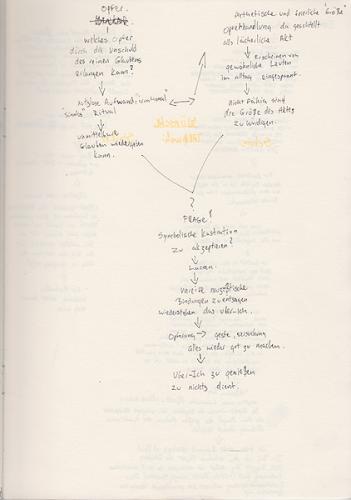 Opfer.
welches Opfer
durch die Unschuld
des reinen Glaubens
erlangen kann?
nutzlose Aufwand: "irrational"
"sinnlos" Ritual
unmittelbare
Glauben wiederspielen
kann.
ästhetische und feierliche "Größe"
Opferhandlung
als lächerliche Akt
erscheinen von
gewöhnliche Leuten
im alltag eingespannt.
nicht fähig sind
die Größe des Aktes
zu würdigen.
?
FRAGE!
Symbolische Kastration
zu akzeptieren?
Lacan.
narzißtische
Bindungen zu entsagen
wiederstehen das über-ich.
Opferung → geste, versuchung
alles wieder gut zu machen.
Über-Ich zu genießen
zu nichts dient.